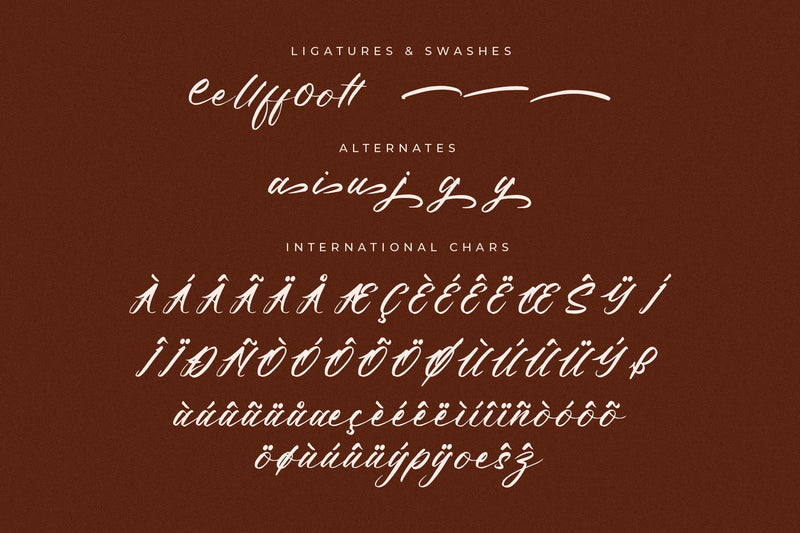 LIGATURES & SWASHES
eellffOott
ALTERNATES
a i u j g y
INTERNATIONAL CHARS
ÀÁÂÃÄÅÆÇÈÉÊËŒŠŸÍ
ÎÏÐÑÒÓÔÕÖØÙÚÛÜÝß
àáâãäåæçèéêëìíîïñòóôõ
öøùúûüýpÿœšž